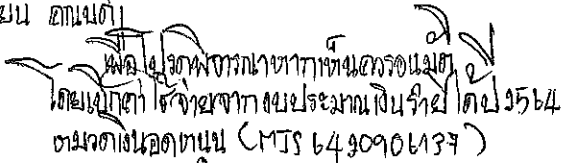 เรียน คณบดี
เพื่อโปรดพิจารณาหากเห็นควรอนุมัติ
โดยเบิกค่าใช้จ่ายจากงบประมาณเงินรายได้ปี 2564
หมวดเงินอุดหนุน (MJS 6420906137)